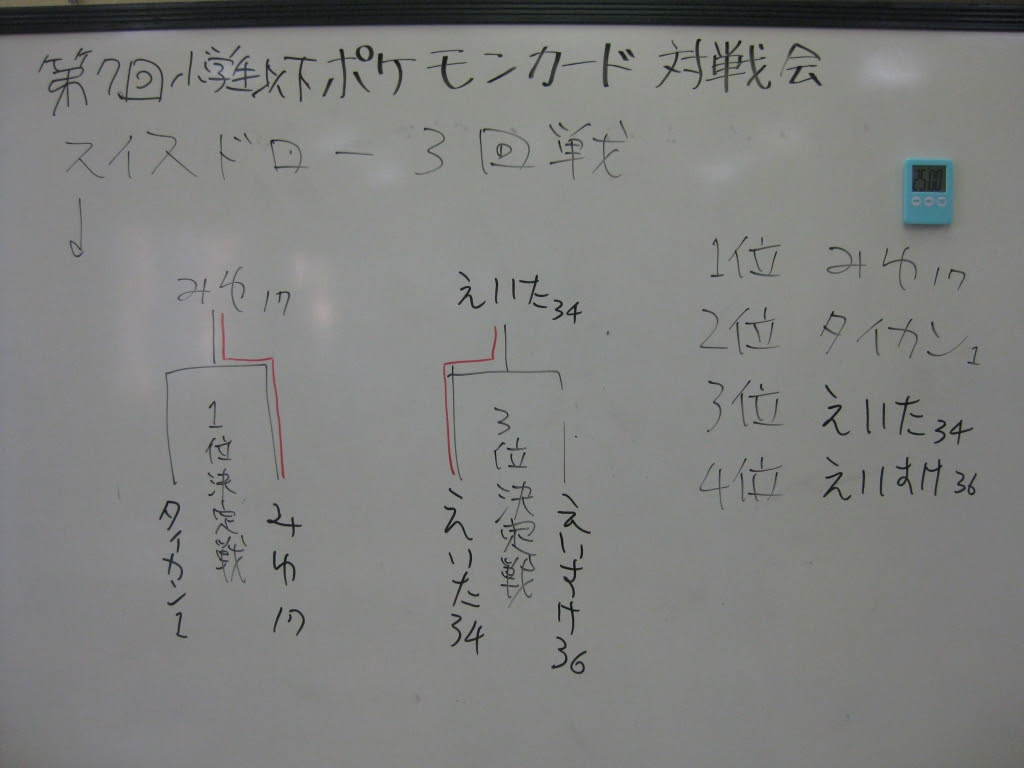 第7回小学生以下ポケモンカード対戦会
スイスドロー3回戦
↓
みゆ17
えいた34
1位決定戦
タイカン1
みゆ17
3位決定戦
えいた34
えいすけ36
1位 みゆ17
2位 タイカン1
3位 えいた34
4位 えいすけ36
25:00